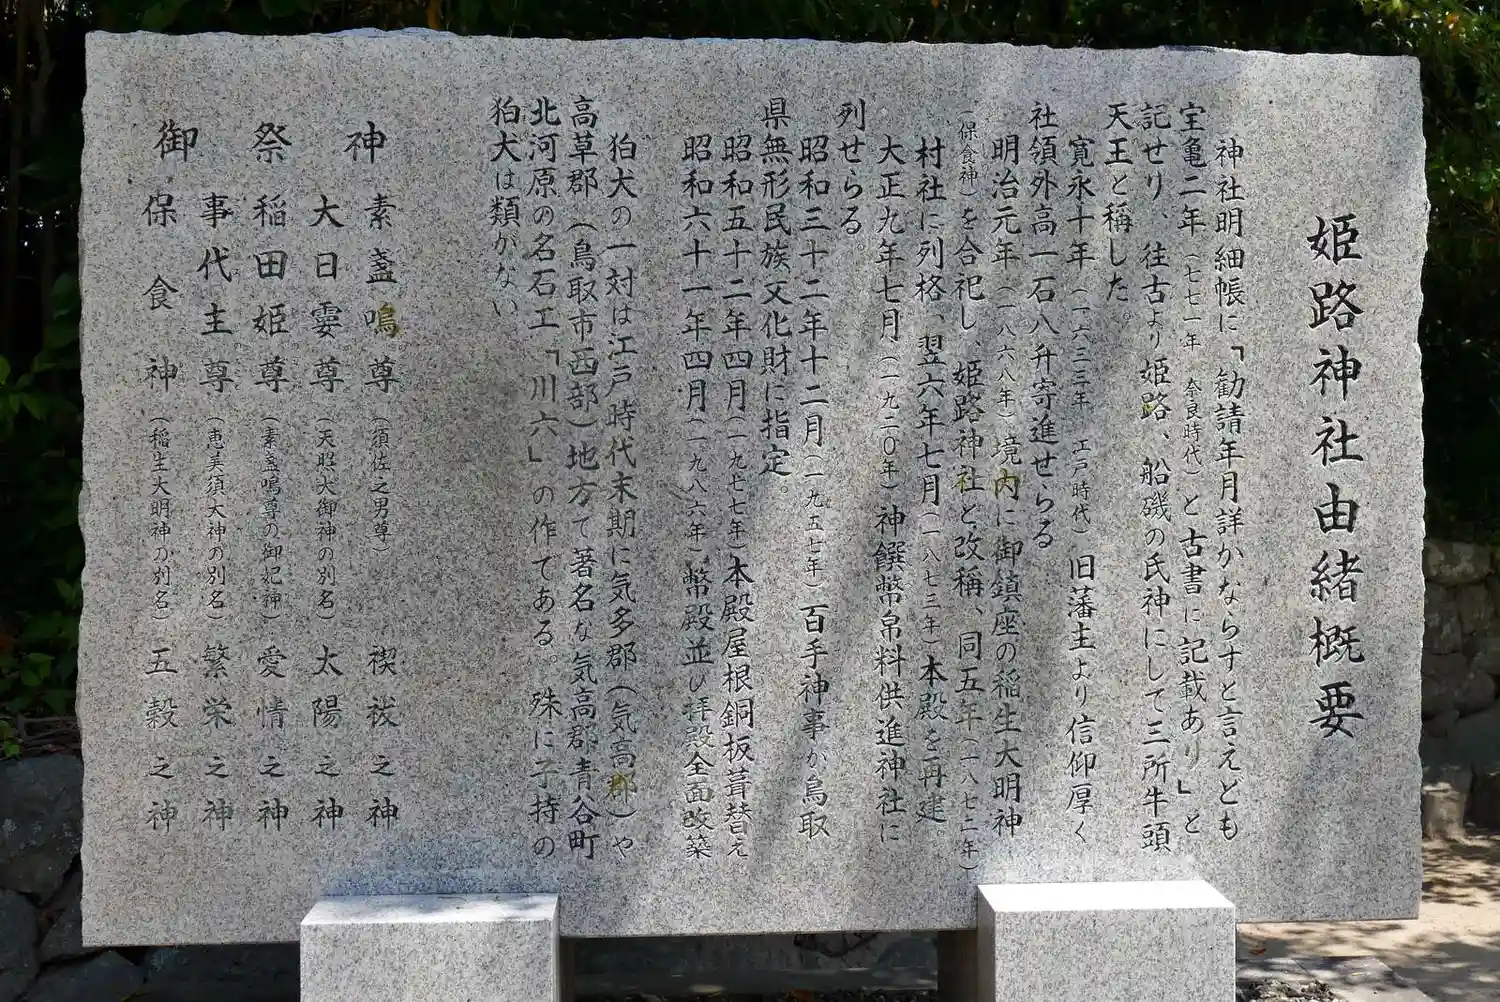 姫路神社由緒概要
神社明細帳に「勧請年月詳かならすと言えども
宝亀二年（七七一年 奈良時代）と古書に記載あり」と
記せり、往古より姫路、船磯の氏神にして三所牛頭
天王と稱した。
寛永十年（一六三三年 江戸時代）旧藩主より信仰厚く
社領外高一石八升寄進せらる。
明治元年（一八六八年）境内に御鎮座の稲生大明神
（保食神）を合祀し、姫路神社と改稱、同五年（一八七二年）
村社に列格、翌六年七月（一八七三年）本殿を再建。
大正九年七月（一九二〇年）神饌幣帛料供進神社に
列せらる。
昭和三十二年十二月（一九五七年）百手神事が鳥取
県無形民族文化財に指定。
昭和五十二年四月（一九七七年）本殿屋根銅板葺替え
昭和六十一年四月（一九八六年）幣殿並び拝殿全面改築
狛犬の一対は江戸時代末期に気多郡（気高郡）や
高草郡（鳥取市西部）地方で著名な気高郡青谷町
北河原の名石工「川六」の作である。殊に子持の
狛犬は類がない
御祭神
素盞嗚尊（須佐之男尊） 禊祓之神
大日孁尊（天照大御神の別名） 太陽之神
稲田姫尊（素盞嗚尊の御妃神） 愛情之神
事代主尊（恵美須大神の別名） 繁栄之神
保食神（稲生大明神の別名） 五穀之神